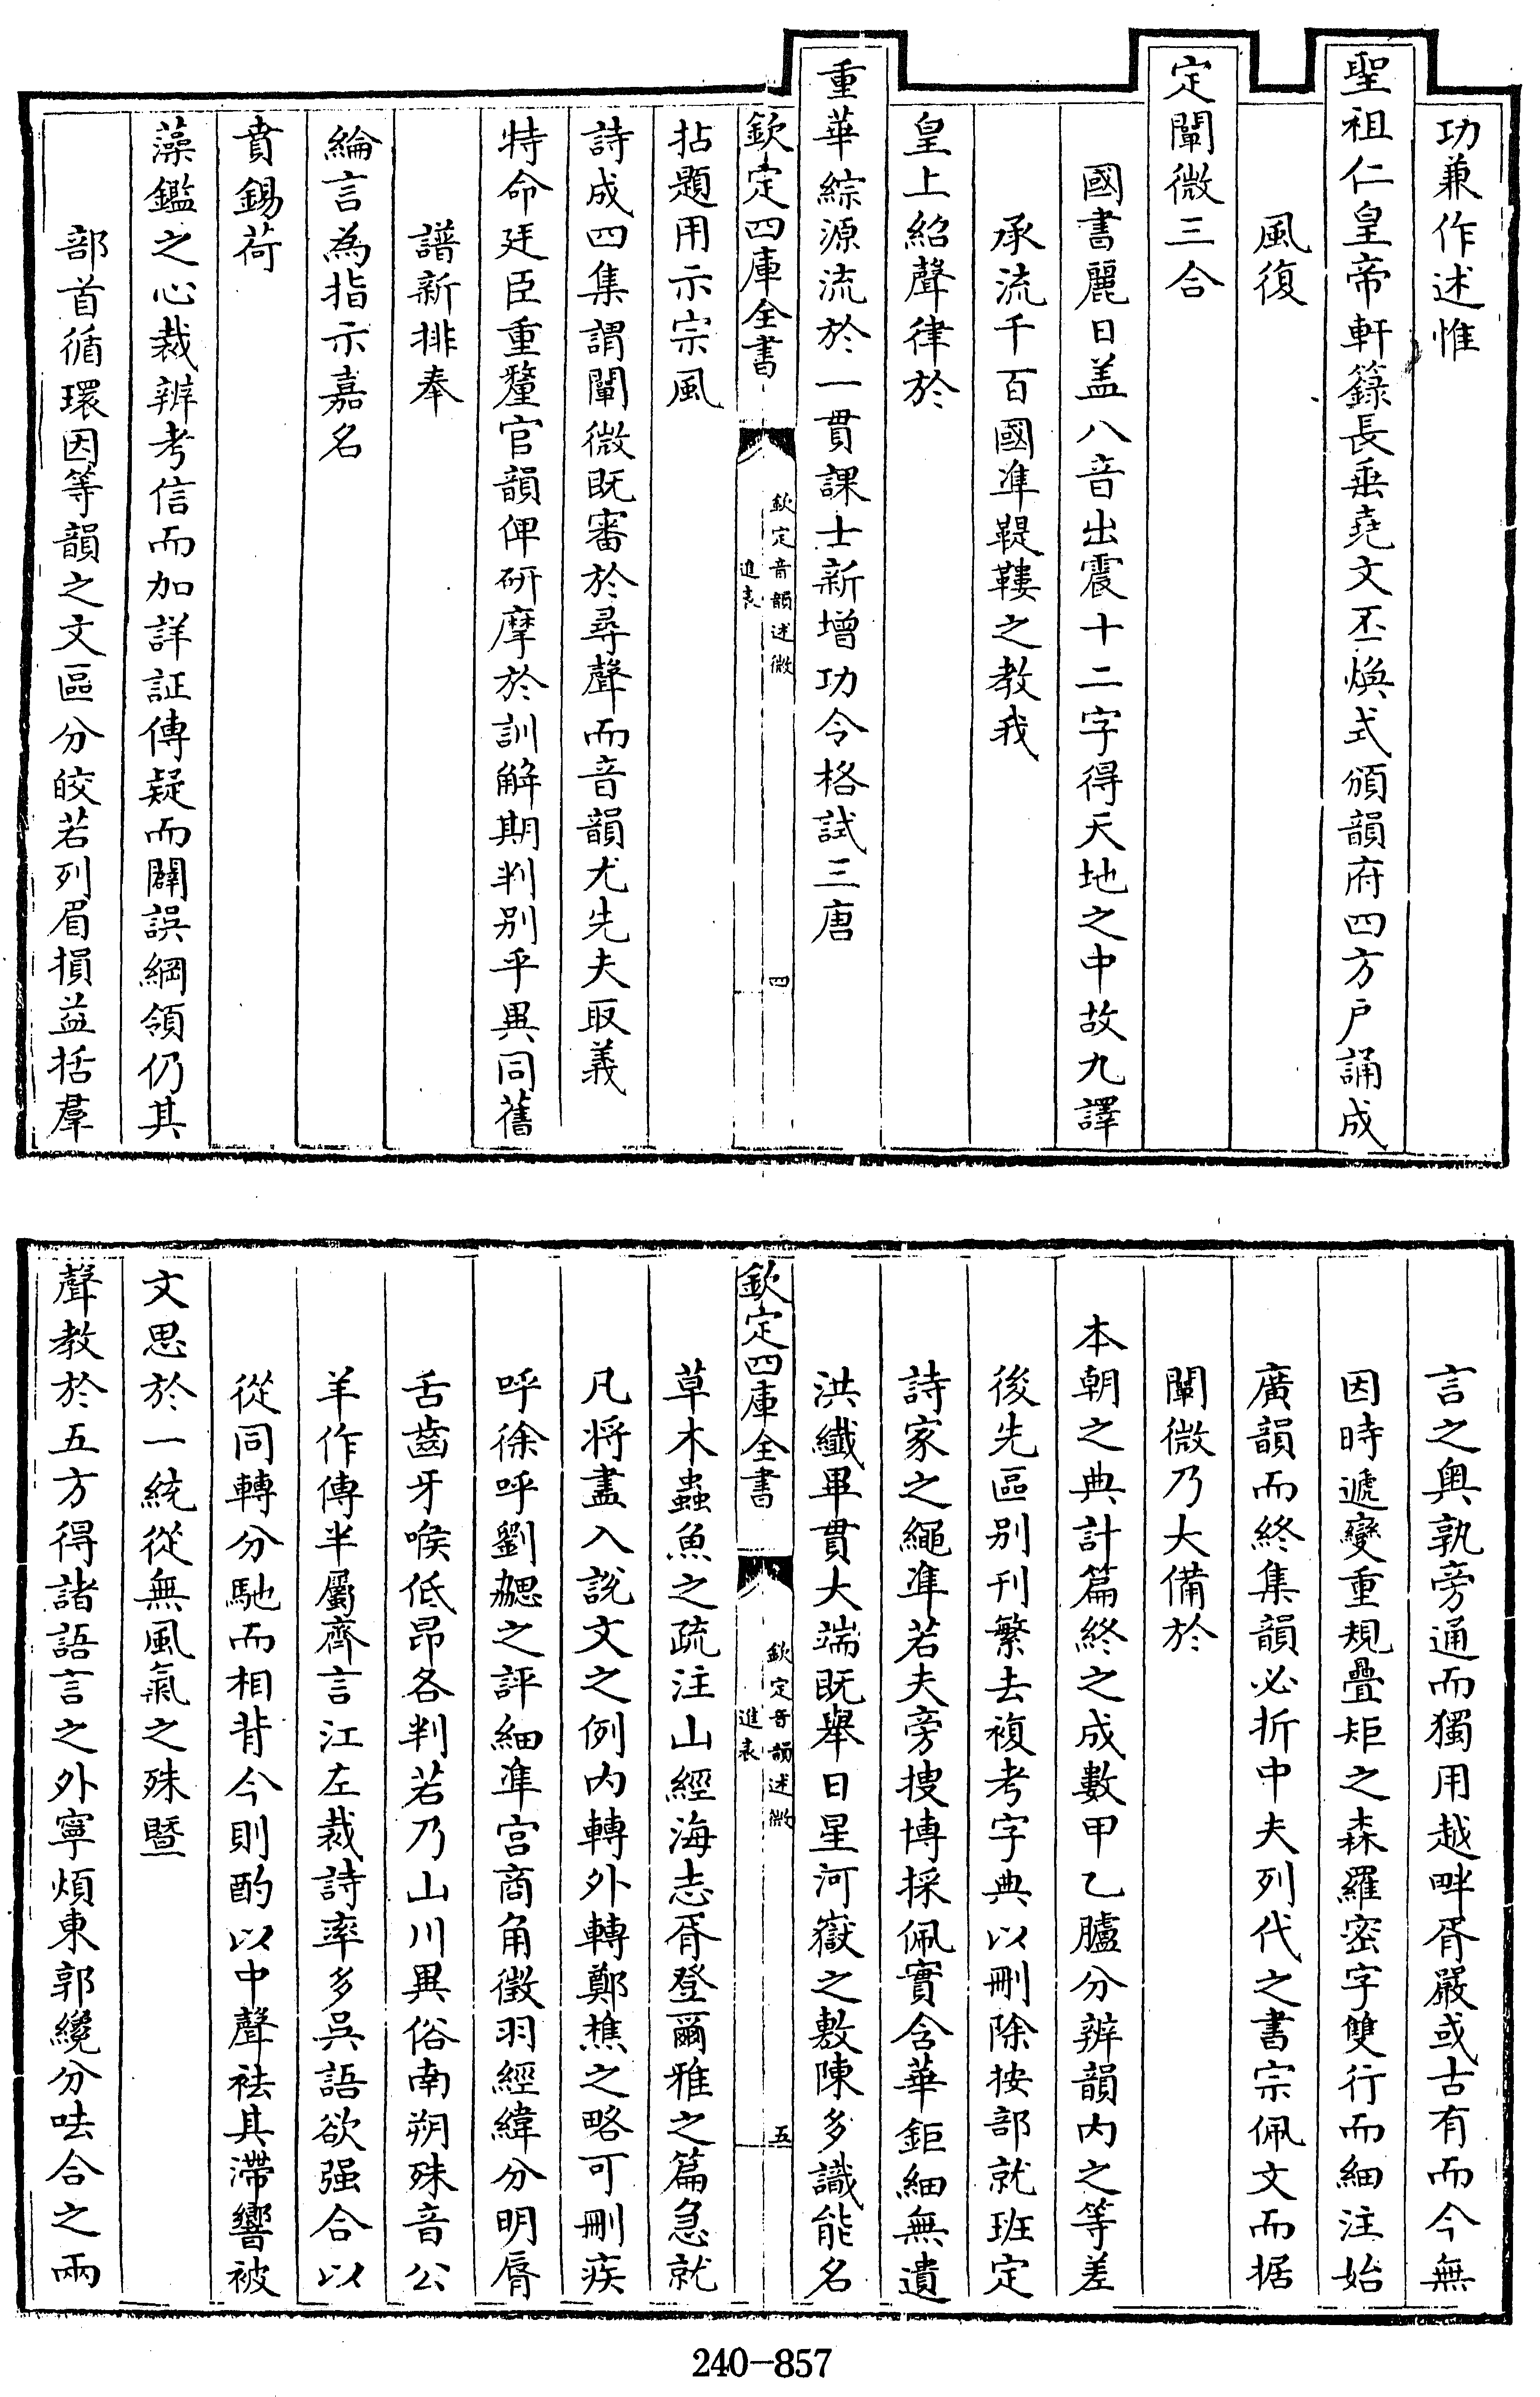 功兼作述惟
聖祖仁皇帝軒籙長垂堯文丕煥式頒韻府四方户誦成
風復
定闡微三合
國書麗日盖八音出震十二字得天地之中故九譯
承流千百國凖鞮鞻之教我
皇上紹聲律於
重華綜源流於一貫課士新增功令格試三唐
欽定四庫全書
欽定音韻述微
進表
四
拈題用示宗風
詩成四集謂闡微既審於尋聲而音韻尤先夫取義
特命廷臣重釐官韻俾研摩於訓解期判别乎異同舊
譜新排奉
綸言為指示嘉名
賁錫荷
藻鑑之心裁辨考信而加詳証傳疑而闢誤綱領仍其
部首循環因等韻之文區分皎若列眉損益括羣
言之奥孰旁通而獨用越畔胥嚴或古有而今無
因時遞變重規疊矩之森羅密字雙行而細注始
廣韻而終集韻必折中夫列代之書宗佩文而据
闡微乃大備於
本朝之典計篇終之成數甲乙臚分辨韻内之等差
後先區别刊繁去複考字典以刪除按部就班定
詩家之繩凖若夫旁搜博採佩實含華鉅細無遺
洪纖畢貫大端既舉日星河嶽之敷陳多識能名
欽定四庫全書
欽定音韻述微
進表
五
草木蟲魚之疏注山經海志胥登爾雅之篇急就
凡将盡入説文之例内轉外轉鄭樵之略可刪疾
呼徐呼劉勰之評細凖宫商角徵羽經緯分明脣
舌齒牙喉低昂各判若乃山川異俗南朔殊音公
羊作傳半屬齊言江左裁詩率多吳語欲强合以
從同轉分馳而相背今則酌以中聲祛其滯響被
文思於一統從無風氣之殊暨
聲教於五方得諸語言之外寧煩東郭纔分呿合之兩
240-857